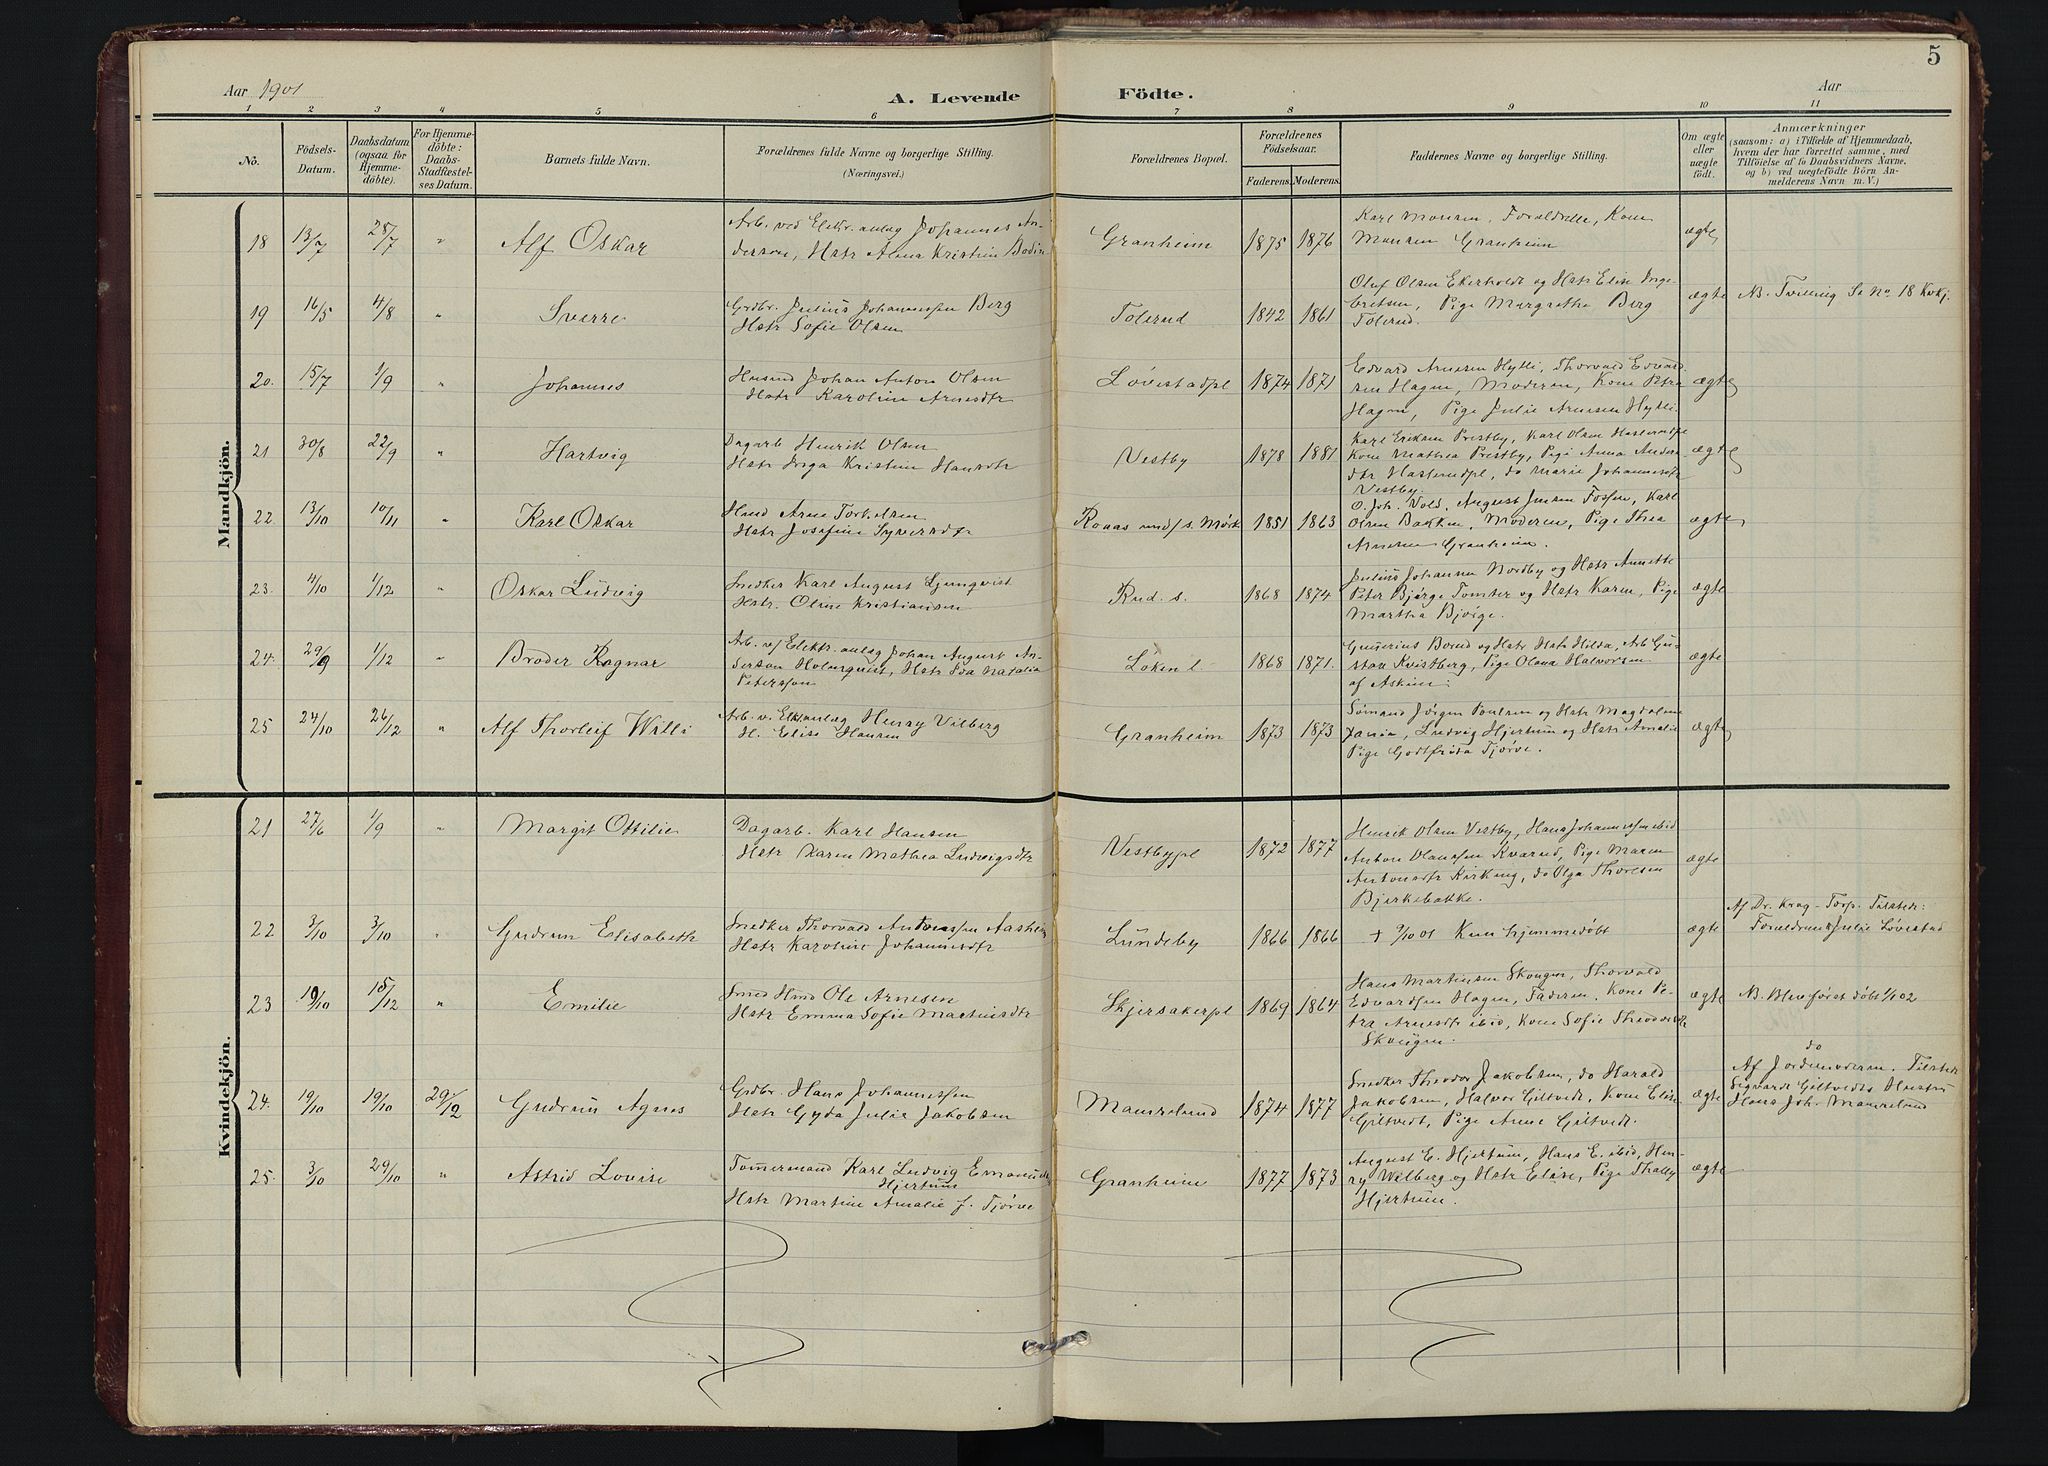 Aar 1901
A. Levende Födte.
Aar
5
1 2 3 4 5 6 7 8 9 10 11
No.
Födsels-
Datum.
Daabsdatum
(ogsaa for
Hjemme-
döbte).
For Hjemme-
döbte:
Daabs-
Stadfæstel-
ses Datum.
Barnets fulde Navn.
Forældrenes fulde Navne og borgerlige Stilling.
(Næringsvei.)
Forældrenes Bopæl.
Forældrenes
Födselsaar.
Faderens. Moderens.
Faddernes Navne og borgerlige Stilling.
Om ægte
eller
uægte
födt.
Anmærkninger
(saasom: a) i Tilfælde af Hjemmedaab,
hvem der har forrettet samme, med
Tilföielse af to Daabsvidners Navne,
og b) ved uægtefödte Börn An-
melderens Navn m. V.)
Mandkjön.
18 13/7 28/7 " Alf Oskar
Arb. ved Elektr. anlæg Johannes An-
derson, Hstr Alma Kristin Bodin
Granheim 1875 1876
Karl Monsen, Forældrene, Kone
Monsen Granheim
ægte
19 16/5 4/8 " Sverre
Grdbr. Julius Johannessen Berg
Hstr Sofie Olsen
Tolerud 1842 1861
Oluf Olsen Ekerholdt og Hstr Elise Inge-
bretsen, Pige Margrethe Berg
Tolerud.
ægte NB. Tvilling Se No 18 Kvkj.
20. 15/7 1/9 " Johannes
Husmd Johan Anton Olsen
Hstr Karoline Arnesdtr
Løvestadpl 1874 1871
Edvard Arnesen Hylli, Thorvald Edvard-
sen Hagen, Moderen, Kone Petra
Hagen, Pige Julie Arnesen Hylli.
ægte
21 30/8 22/9 " Hartvig
Dagarb Henrik Olsen
Hstr Inga Kristine Hansdtr
Vestby 1878 1881
Karl Eriksen Prestby, Karl Olsen
Kone Mathea Prestby, Pige Anna Anders-
dtr do Marie Johannesdtr
Vestby.
ægte
22. 13/10 10/11 " Karl Oskar
Hmd Arne Torkelsen
Hstr Josefine Syversdtr
Roaas und/s. Mørk 1851 1863
O. Joh. Vold, August Jensen Fossen, Karl
Olsen Bakken, Moderen, Pige Thea
Arnesen Granheim.
ægte
23. 4/10 1/12 " Oskar Ludvig
Snedker Karl August Ljunqvist
Hstr. Oline Kristiansen
Rud. s. 1868 1874
Julius Johannes Nordby og Hstr Annette
Peter Bjørge Tomter og Hstr Karen, Pige
Martha Bjørge.
ægte
24. 29/9 1/12 " Broder Ragnar
Arb. v/ Elektr. anlæg Johan August An-
derson Holmqvist, Hstr Ida Natalia
Peterson
Løken l. 1868 1871.
Gunerius Bond og Hstr Hstr Hilda, Arb Gu-
stav Kvistberg, Pige Olava Halvorsen
af Askim.
ægte
25 24/10 26/12 " Alf Thorleif Willi
Arb. v. Elktanlæg Henry Vilberg
H. Elise Hansen
Granheim 1873 1873
Sømand Jørgen Poulsen og Hstr Magdalene
Xania, Ludvig Hjertum og Hstr Amalie
Pige Godtfrida Tjørve.
ægte
Kvindekjön.
21 27/6 1/9 " Margit Ottilie
Dagarb. Karl Hansen
Hstr Karen Mathea Ludvigsdtr
Vestbypl 1872 1877
Henrik Olsen Vestby, Hans Johannessen ibid
Anton Olaussen Kværud, Pige Maren
Antonsdtr Kirkeng, do Olga Thoresen
Bjerkebakke.
ægte
22 3/10 3/10 " Gudrun Elisabeth
Snedker Thorvald Antonessen Aasheim
Hstr Karoline Johannesdtr
Lundeby 1866 1866
+ 9/10 01 Kun hjemmedøbt
ægte
Af Dr. Krag - Torp. Tilstede:
Forældrene & Julie Løvestad
23 19/10 15/12 " Emilie
Smed Hmd Ole Arnesen
Hstr Emma Sofie Martinsdtr
Skjersakerpl 1869 1864
Hans Martinsen Skougen, Thorvald
Edvardsen Hagen, Faderen, Kone Pe-
tra Arnesdtr ibid, Kone Sofie Theodorsdtr
Skougen.
ægte NB. Blev først døbt 1/1 02
24. 19/10 19/10 29/12 Gudrun Agnes
Grdbr. Hans Johannessen
Hstr Gyda Julie Jakobsen
Mamrelund 1874 1877
Snedker Theodor Jakobsen, do Harald
Jakobsen, Halvor Giltvedt, Kone Elise
Giltvedt, Pige Anne Giltvedt.
ægte
do
Af Jordemoderen. Tilstede
Sigvardt Giltvedts Hustru
Hans Joh. Mamrelund
25. 3/10 29/10 " Astrid Lovise
Tømermand Karl Ludvig Emanuel
Hjertum
Hstr Martine Amalie f. Tjørve
Granheim 1877 1873
August E. Hjertum, Hans E. ibid, Hen-
ry Wilberg og Hstr Elise, Pige Thally
Hjertum.
ægte